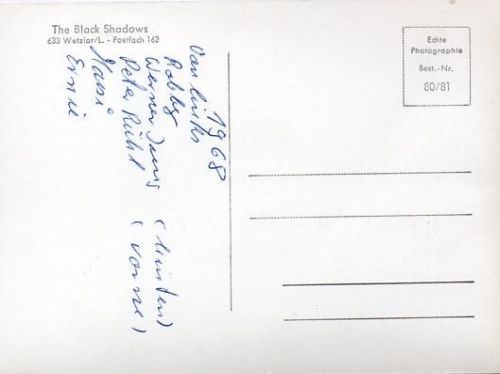 The Black Shadows
633 Wetzlar/L. - Postfach 162
Echte
Photographie
Best.-Nr.
80/81
1968
Von links
Robby
Werner Jung (hinten)
Peter Rühl (vorne)
Hansi
Ernie